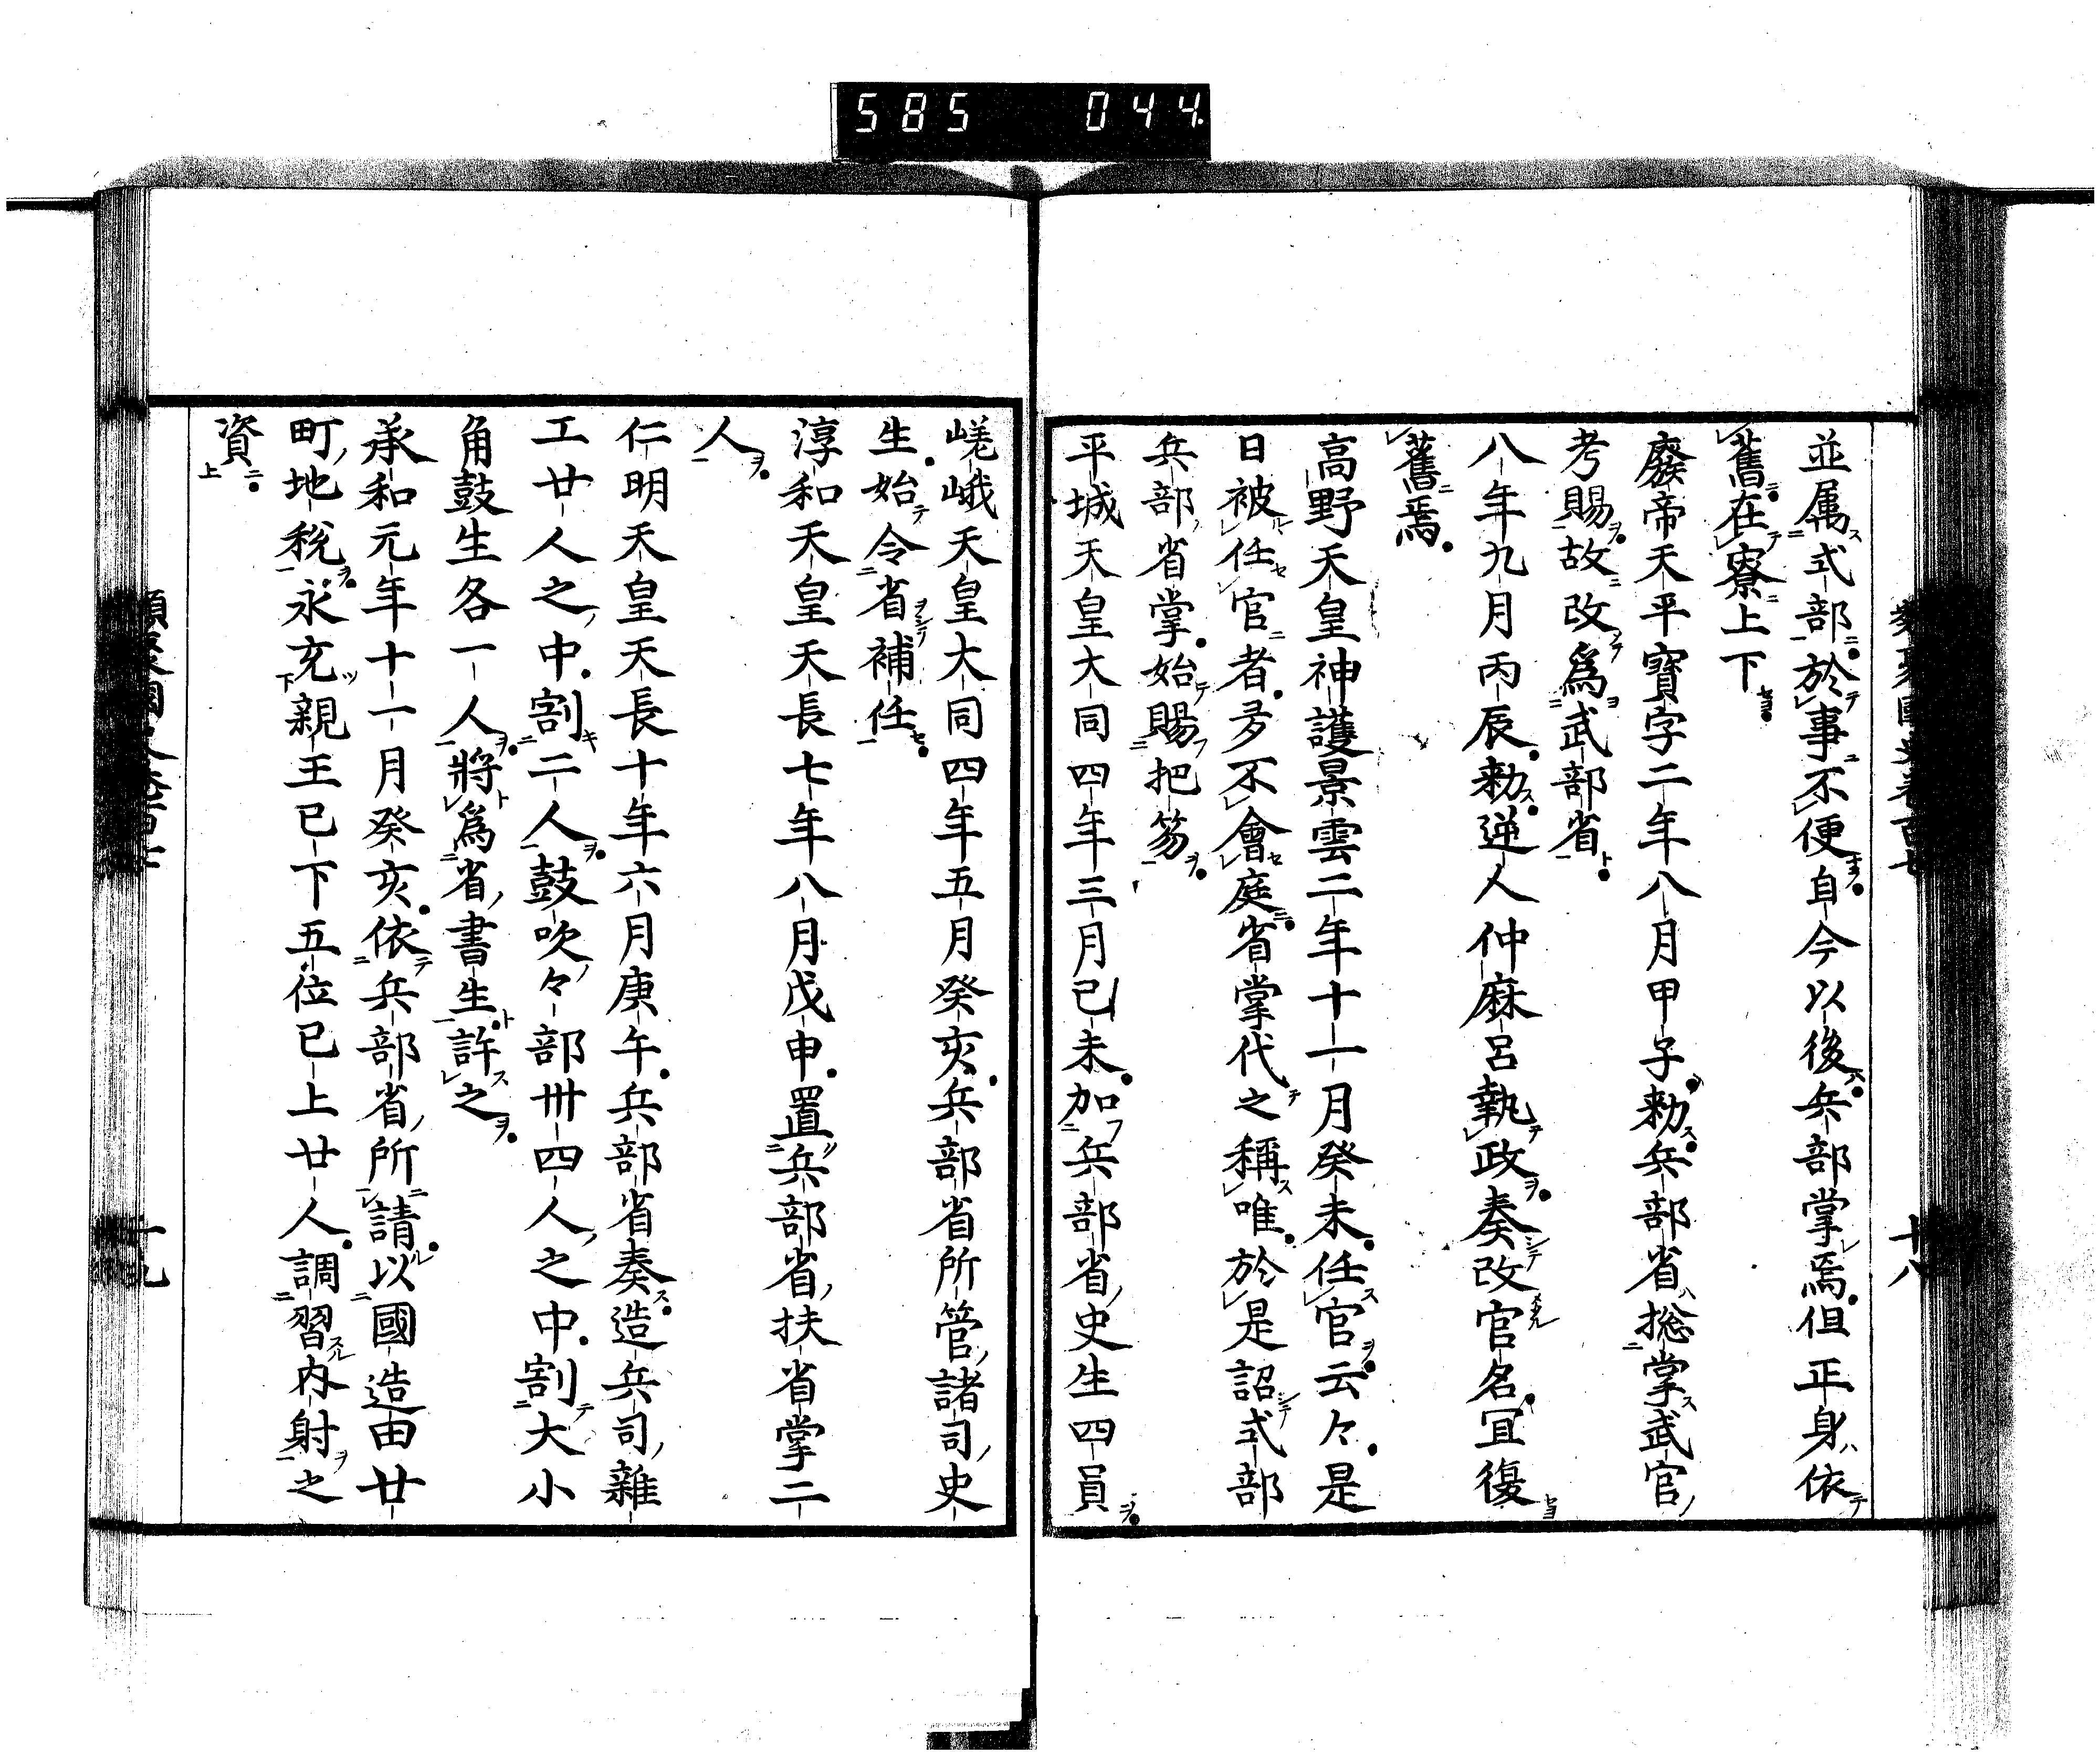 585 044
並属式部於事不便自今以後兵部掌焉但正身依
舊在寮上下
廢帝天平寳字二年八月甲子勅兵部省捴掌武官
考賜故改爲武部省
八年九月丙辰勅逆人仲麻呂執政奏改官名冝復
舊焉
高野天皇神護景雲二年十一月癸未任官云々是
日被任官者多不會庭省掌代之稱唯於是詔式部
兵部省掌始賜把笏
平城天皇大同四年三月己未加兵部省史生四員
嵯峨天皇大同四年五月癸亥兵部省所管諸司史
生始令省補任
淳和天皇天長七年八月戊申置兵部省扶省掌二
人
仁明天皇天長十年六月庚午兵部省奏造兵司雜
工廿人之中割二人鼓吹々部卅四人之中割大小
角鼓生各一人將爲省書生許之
承和元年十一月癸亥依兵部省所請以國造田廿
町地税永充親王已下五位已上廿人調習内射之
資